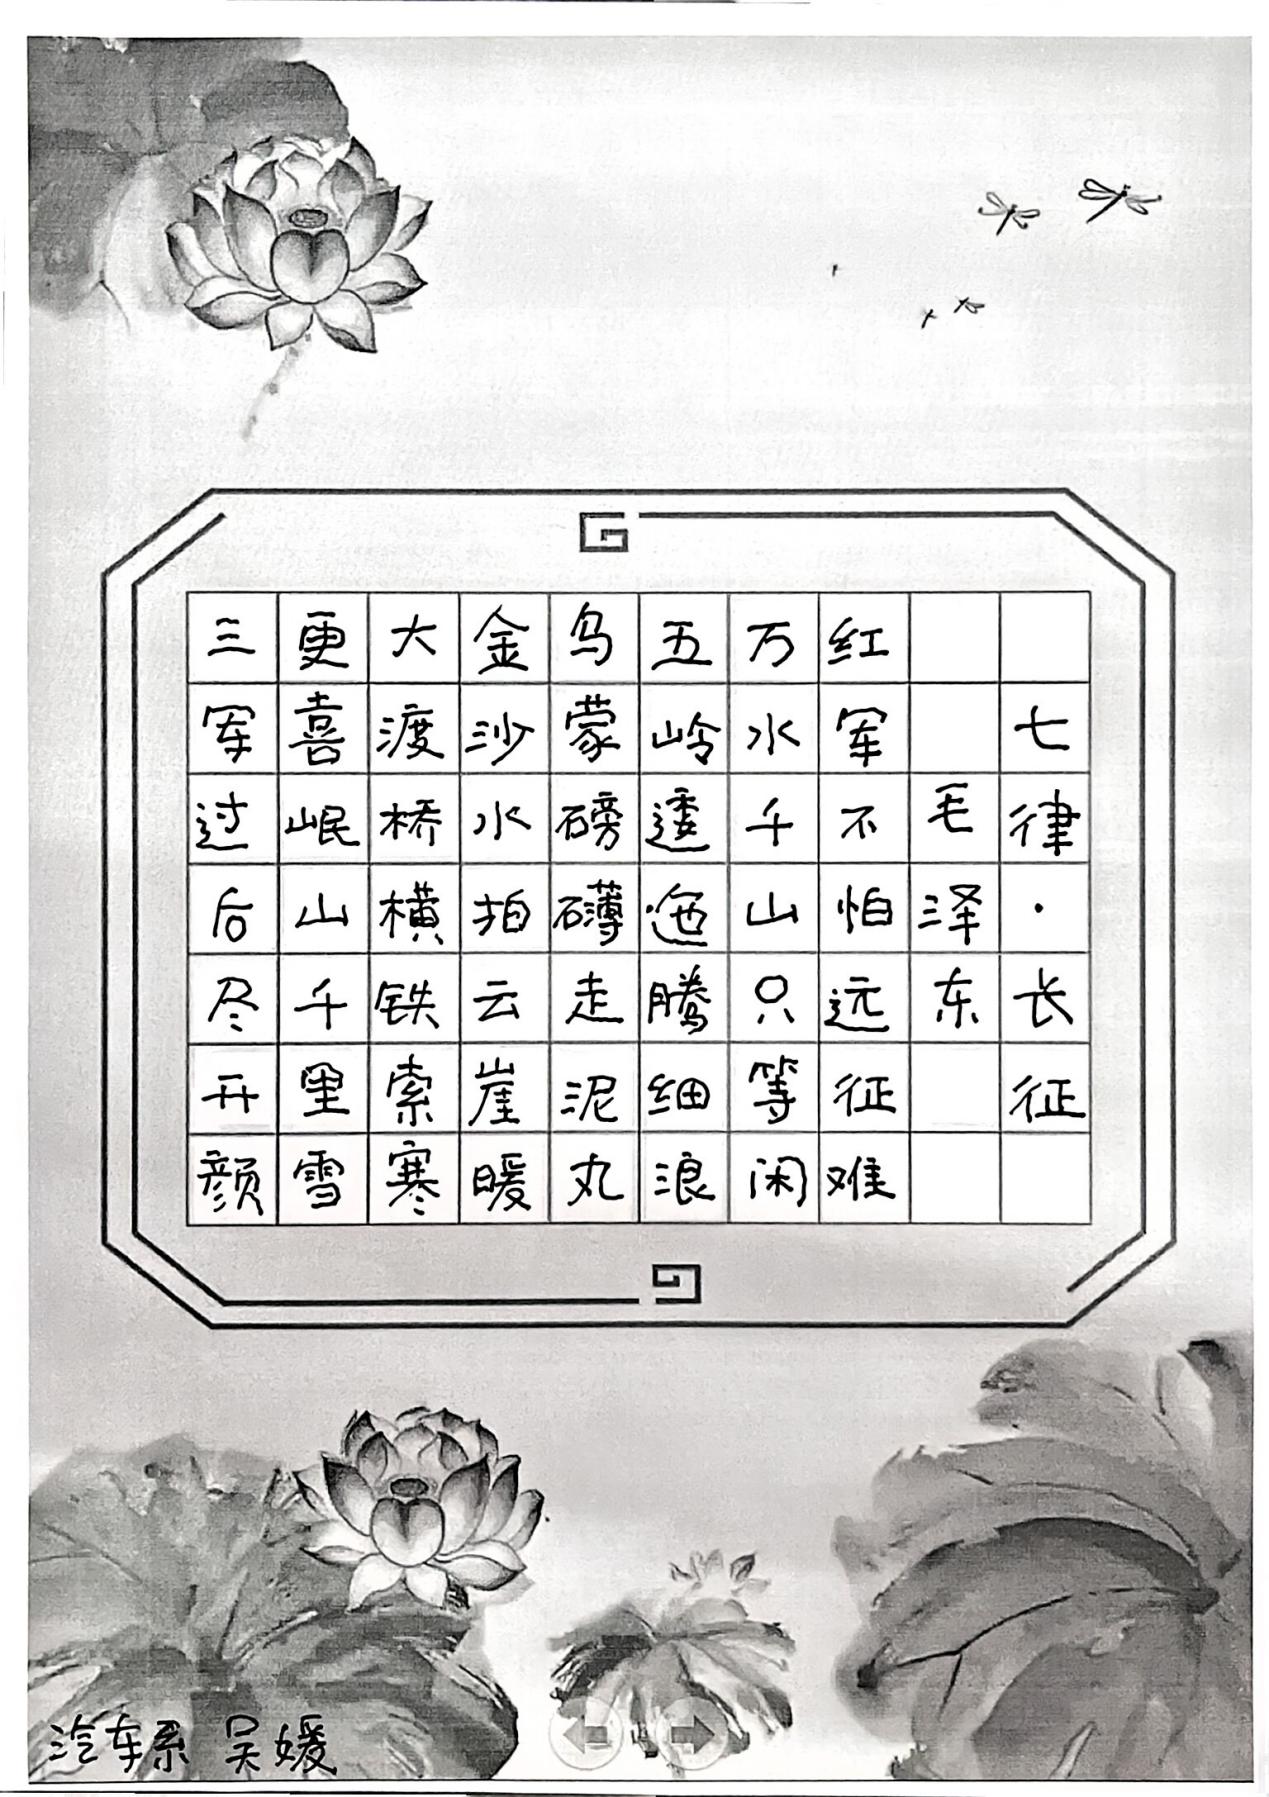 七律·长征
毛泽东
红军不怕远征难
万水千山只等闲
五岭逶迤腾细浪
乌蒙磅礴走泥丸
金沙水拍云崖暖
大渡桥横铁索寒
更喜岷山千里雪
三军过后尽开颜
汽车系 吴媛